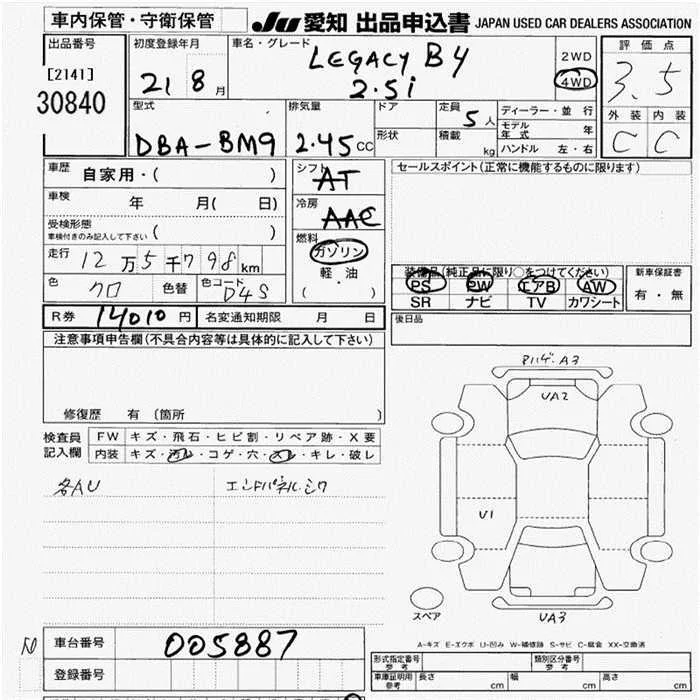 車内保管・守衛保管
JU 愛知 出品申込書 JAPAN USED CAR DEALERS ASSOCIATION
出品番号
[2141]
30840
初度登録年月
21 8 月
車名・グレード
LEGACY B4
2.5i
2WD
4WD
評価点
3.5
外装 内装
C C
型式
DBA-BM9
排気量
2.45 CC
ドア
形状
定員
5 人
積載
kg
ディーラー・並行
モデル年式 年
ハンドル 左・右
車歴
自家用・( )
車検
年 月( 日)
受検形態
車検付きのみ記入して下さい ( )
走行
12万5千798 km
色
クロ
色替
色コード
D4S
シフト
AT
冷房
AAC
燃料
ガソリン
軽・油
( ・ )
セールスポイント(正常に機能するものに限ります)
装備品(純正品に限り○をつけてください)
PS PW エアB AW
SR ナビ TV カワシート
新車保証書
有・無
後日品
R券 14010 円
名変通知期限 月 日
注意事項申告欄(不具合内容等は具体的に記入して下さい)
修復歴 有 (箇所 )
検査員
記入欄
FW キズ・飛石・ヒビ割・リペア跡・X要
内装 キズ・汚れ・コゲ・穴・スレ・キレ・破レ
各AU
エンドパネル.シワ
Rバンパ.A3
UA2
U1
UA3
スペア
A-キズ E-エクボ U-凹み W-補修跡 S-サビ C-腐食 XX-交換済
車台番号
005887
登録番号
形式指定番号
参考
類別区分番号
参考
車庫証明用
参考
長さ cm
幅 cm
高さ cm